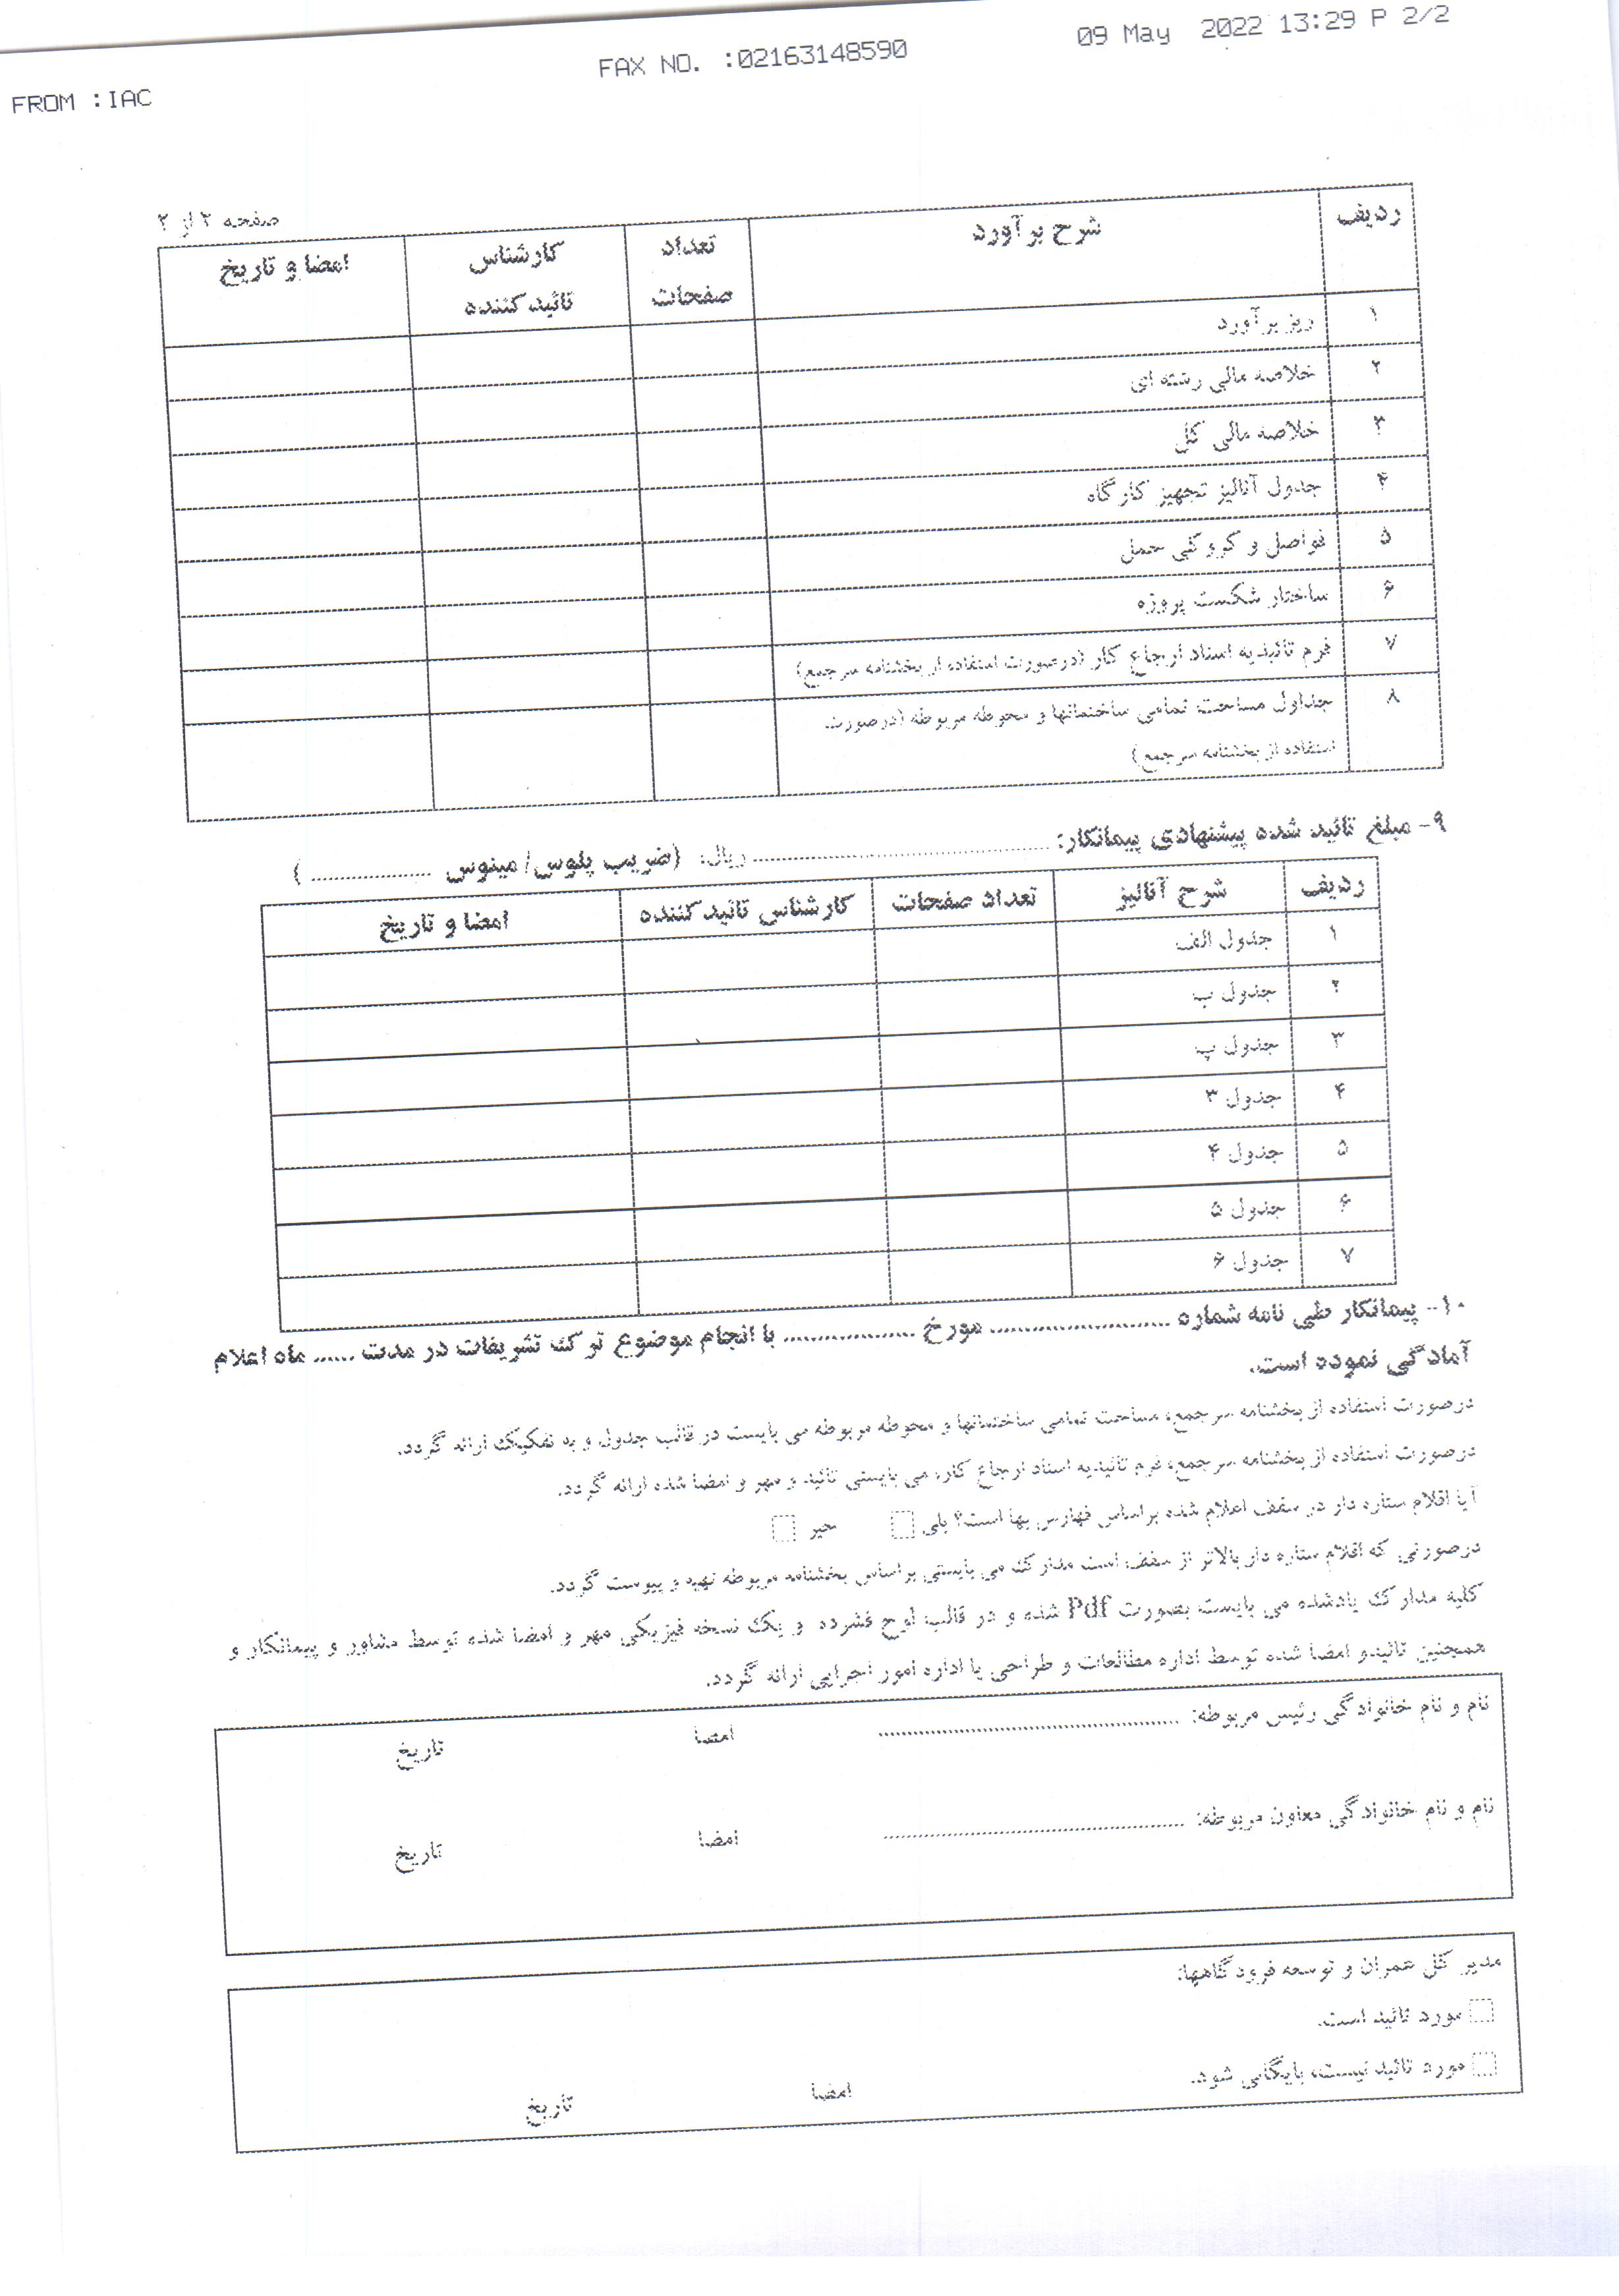 09 May 2022 13:29 P 2/2
FAX NO. :02163148590
FROM :IAC
صفحه ۲ از ۲
ردیف شرح برآورد تعداد صفحات کارشناس تائید کننده امضا و تاریخ
۱ ریز برآورد
۲ خلاصه مالی رشته ای
۳ خلاصه مالی کل
۴ جدول آنالیز تجهیز کارگاه
۵ فواصل و کروکی حمل
۶ ساختار شکست پروژه
۷ فرم تائیدیه اسناد ارجاع کار (درصورت استفاده از بخشنامه سرجمع)
۸ جداول مساحت تمامی ساختمانها و محوطه مربوطه (درصورت
استفاده از بخشنامه سرجمع)
۹- مبلغ تائید شده پیشنهادی پیمانکار: .................... ریال: (ضریب پلوس/ مینوس .................... )
ردیف شرح آنالیز تعداد صفحات کارشناس تائید کننده امضا و تاریخ
۱ جدول الف
۲ جدول ب
۳ جدول پ
۴ جدول ۳
۵ جدول ۴
۶ جدول ۵
۷ جدول ۶
۱۰- پیمانکار طی نامه شماره .................... مورخ .................... با انجام موضوع ترک تشریفات در مدت ...... ماه اعلام
آمادگی نموده است.
درصورت استفاده از بخشنامه سرجمع، مساحت تمامی ساختمانها و محوطه مربوطه می بایست در قالب جدول و به تفکیک ارائه گردد.
درصورت استفاده از بخشنامه سرجمع، فرم تائیدیه اسناد ارجاع کار، می بایستی تائید و مهر و امضا شده ارائه گردد.
آیا اقلام ستاره دار در سقف اعلام شده براساس فهارس بها است؟ بلی خیر
درصورتی که اقلام ستاره دار بالاتر از سقف است مدارک می بایستی براساس بخشنامه مربوطه تهیه و پیوست گردد.
کلیه مدارک یادشده می بایست بصورت Pdf شده و در قالب لوح فشرده و یک نسخه فیزیکی مهر و امضا شده توسط مشاور و پیمانکار و
همچنین تائیدو امضا شده توسط اداره مطالعات و طراحی یا اداره امور اجرایی ارائه گردد.
نام و نام خانوادگی رئیس مربوطه: .................... امضا تاریخ
نام و نام خانوادگی معاون مربوطه: .................... امضا تاریخ
مدیر کل عمران و توسعه فرودگاهها:
مورد تائید است.
مورد تائید نیست، بایگانی شود. امضا تاریخ